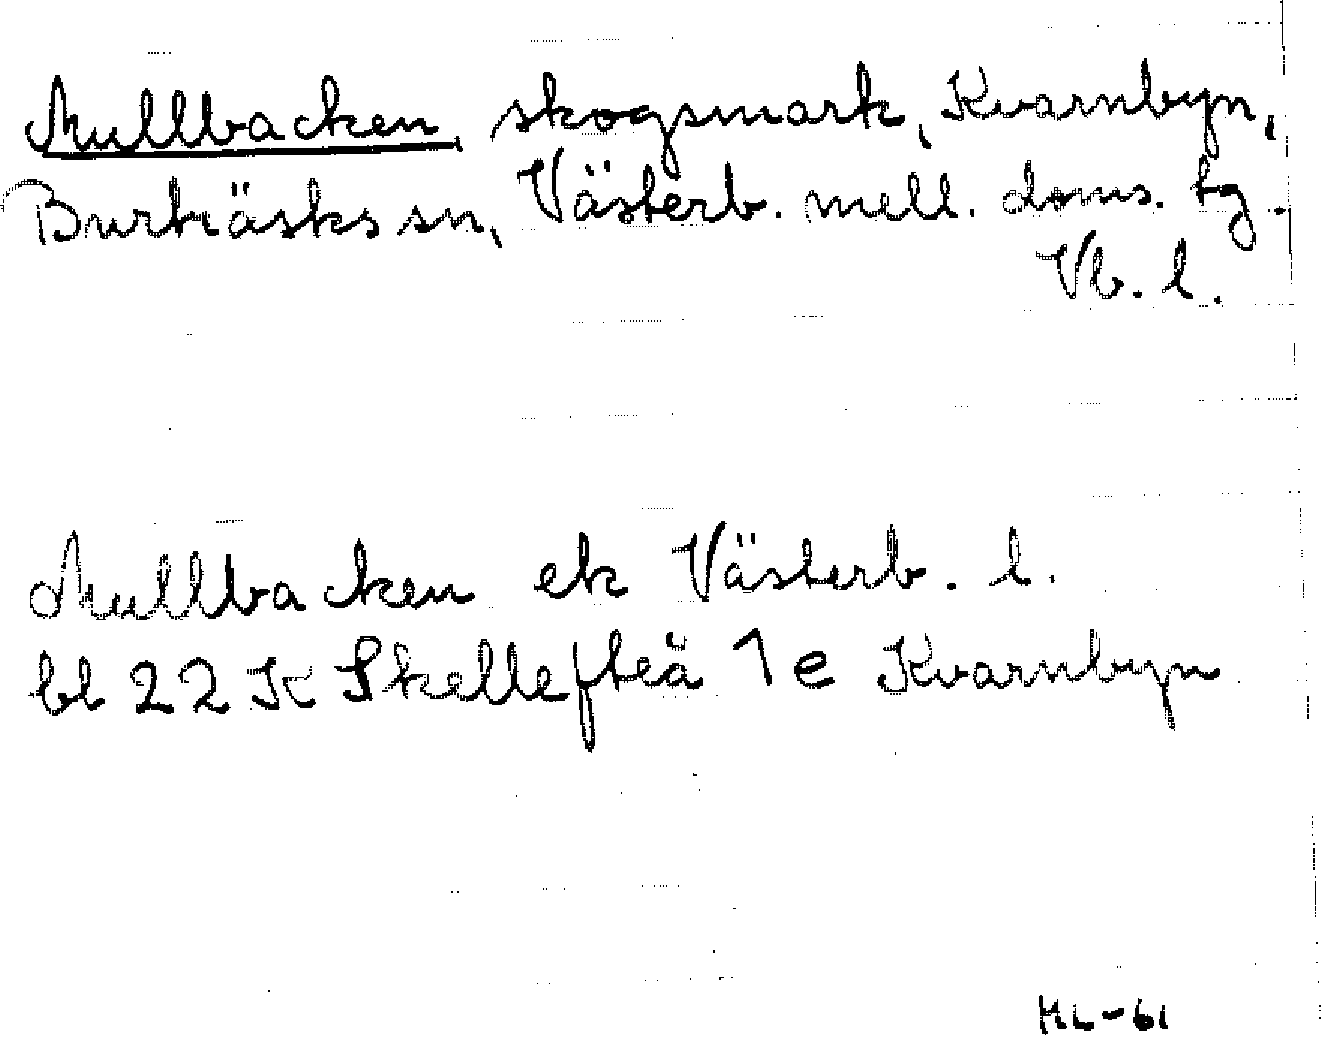 Mullbacken, skogsmark, Kvarnbyn,
Burträsks sn, Västerb. mell. doms. tg.
Vb. l.
Mullbacken ek Västerb. l.
bl 22 K Skellefteå 1e Kvarnbyn
HL-61